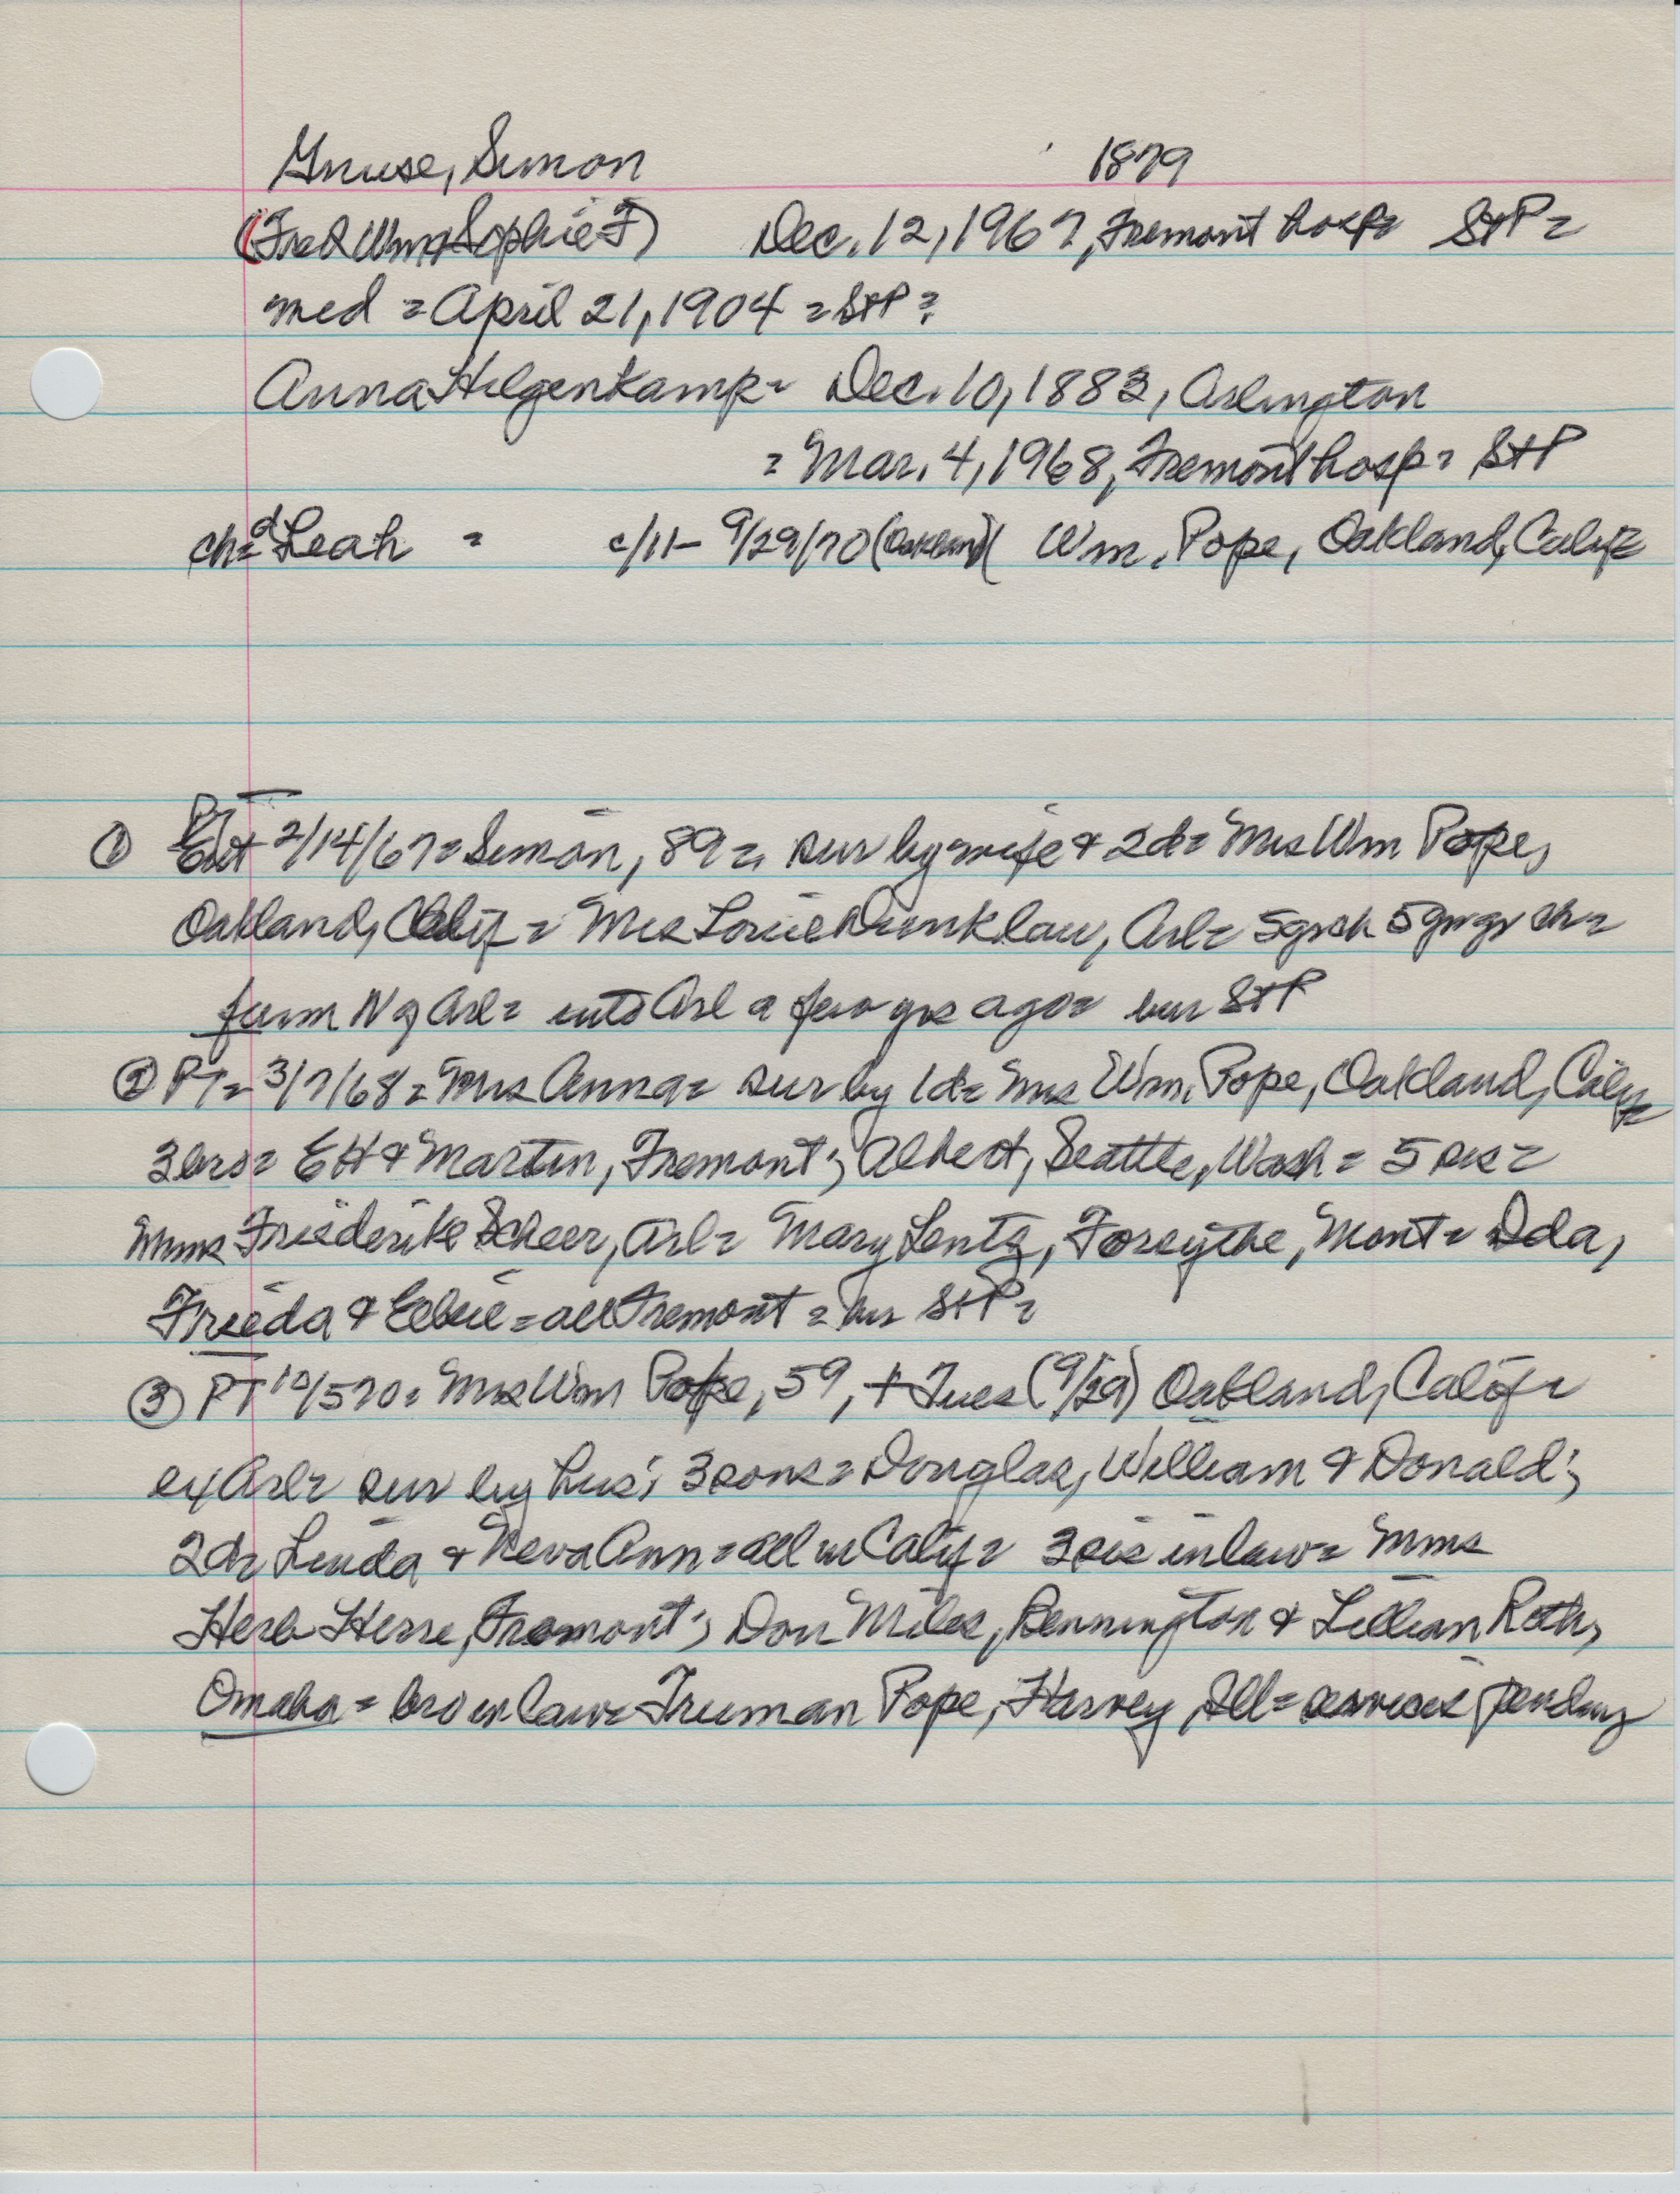 Gnuse, Simon 1879
(Fred Wm & Sophie F) Dec. 12, 1967, Fremont hosp = StP =
med = April 21, 1904 = StP =
Anna Hilgenkamp = Dec. 10, 1883, Arlington
= Mar. 4, 1968, Fremont hosp = StP
ch = d Leah = c/11 - 9/29/70 (Oakland) ( Wm. Pope, Oakland, Calif =
① PT 2/14/67 = Simon, 89 = sur by wife & 2d = Mrs Wm Pope,
Oakland, Calif = Mrs Louie Dunklau, Arl = 5 grch 5 gr gr ch =
farm N of Arl = into Arl a few yrs ago = bur StP
② PT = 3/7/68 = Mrs Anna = sur by 1d = Mrs Wm. Pope, Oakland, Calif =
3 bro = EH & Martin, Fremont; Albert, Seattle, Wash = 5 sis =
Mmes Friederike Scheer, Arl = Mary Lentz, Forsythe, Mont = Ida,
Frieda & = all Fremont = bur StP =
③ PT 10/5 70 = Mrs Wm Pope, 59, + Tues (9/29) Oakland, Calif =
ex Arl = sur by hus; 3 sons = Douglas, William & Donald;
2d = Linda & Reva Ann = all in Calif = 3 sis in law = Mmes
Herb Hesse, Fremont; Don Miles, Bennington & Lillian Roth,
Omaha = bro in law = Truman Pope, Harvey, Ill = services pending